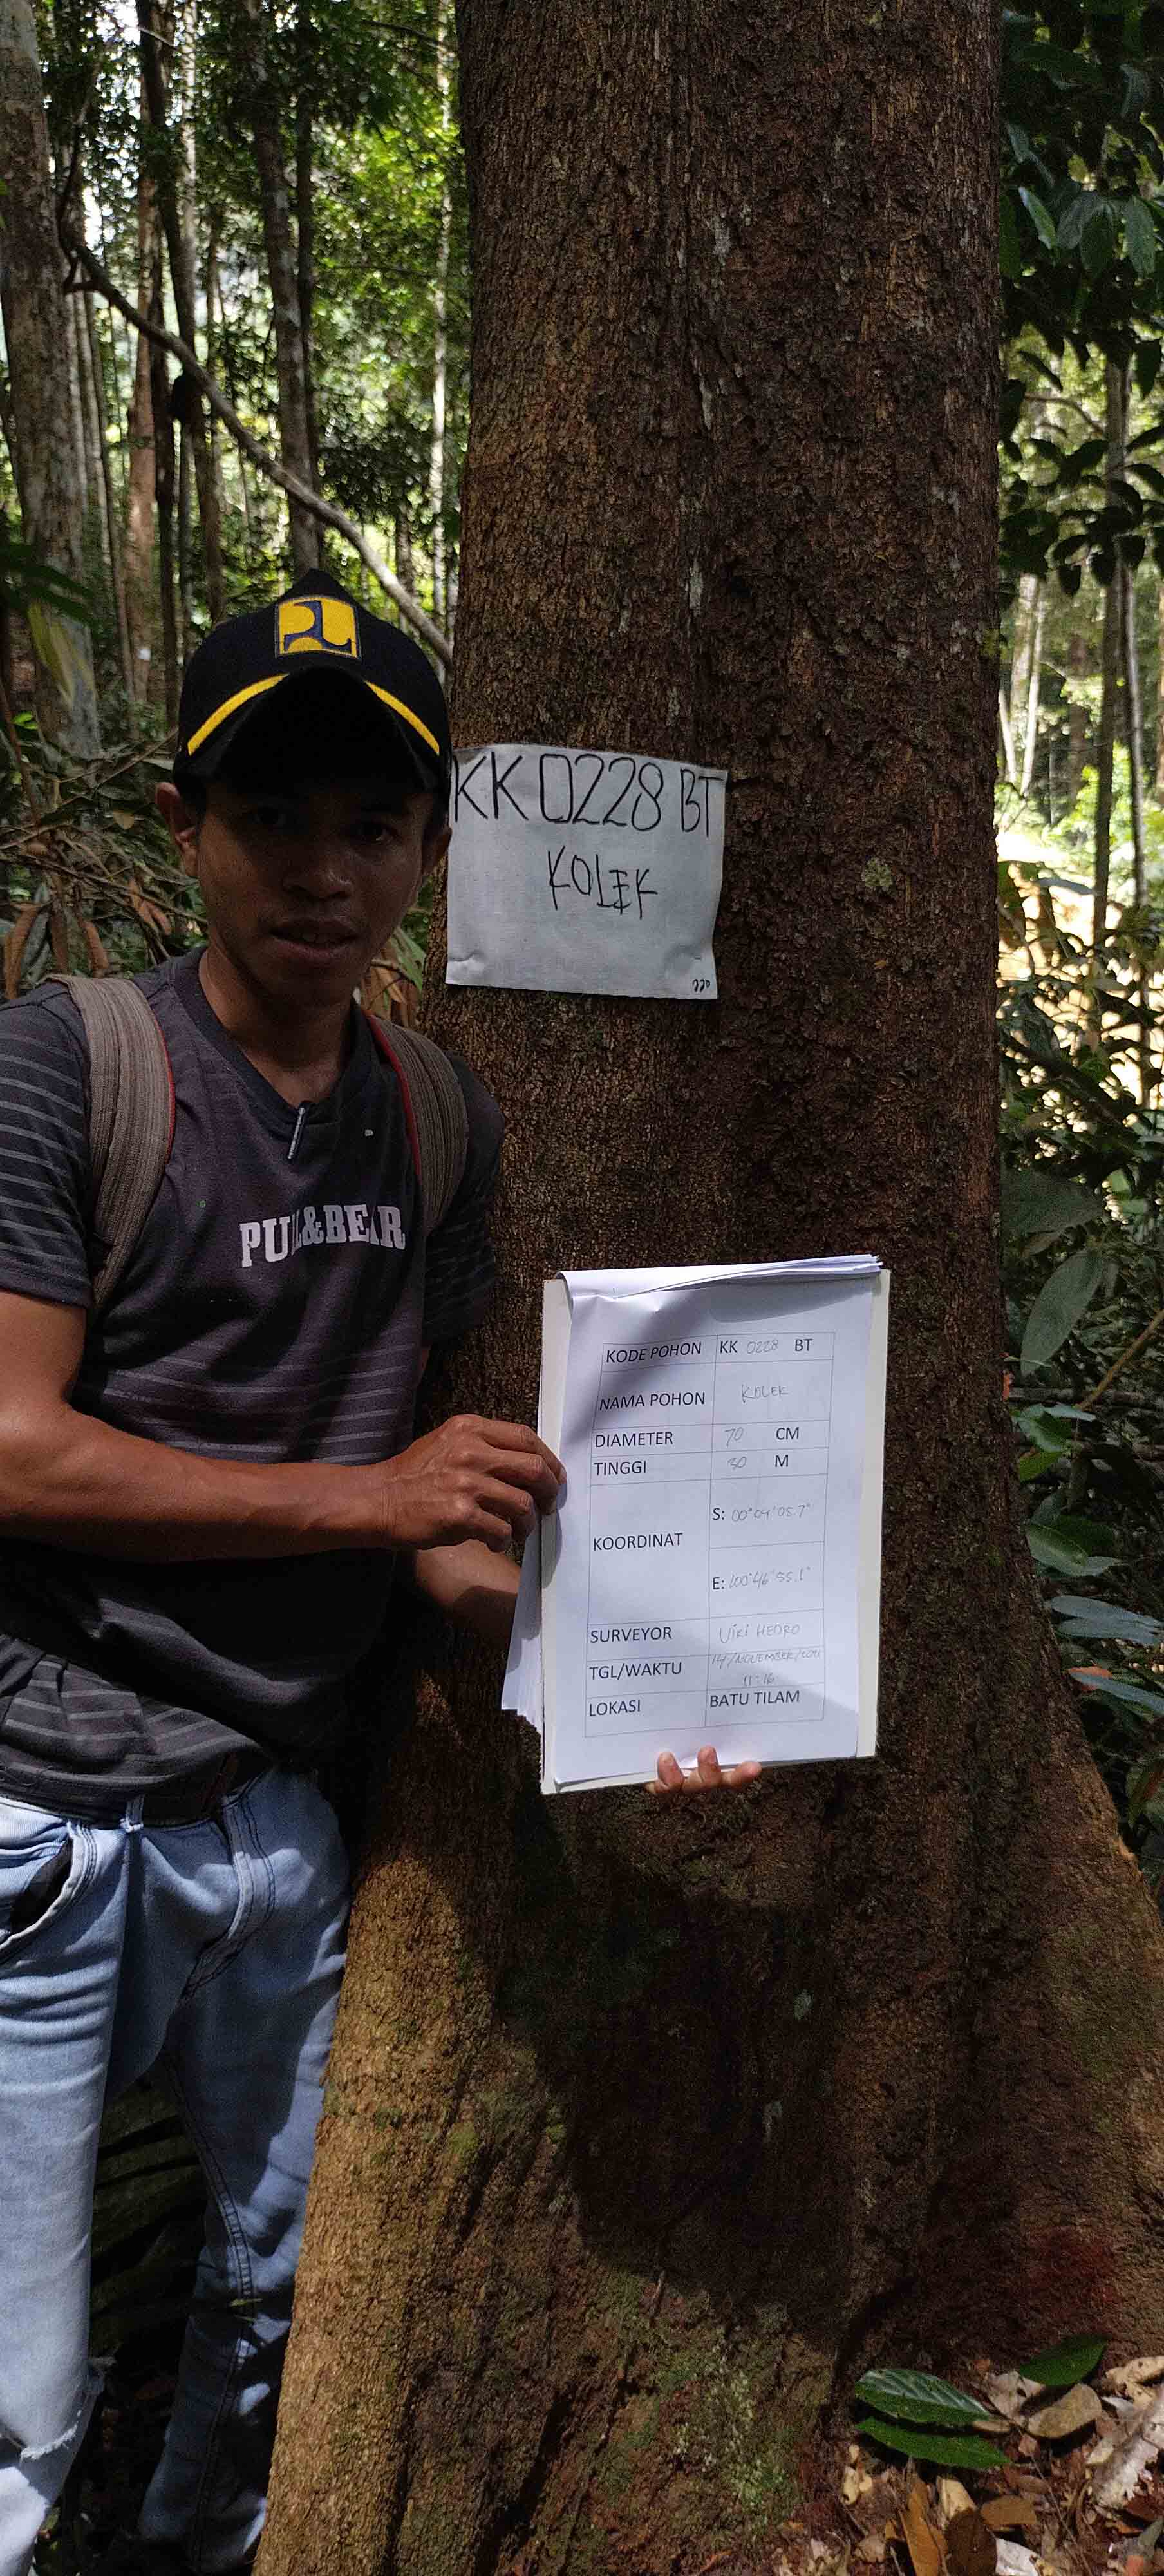 KK 0228 BT
KOLEK
220
PULL&BEAR
KODE POHON KK 0228 BT
NAMA POHON KOLEK
DIAMETER 70 CM
TINGGI 30 M
KOORDINAT
S: 00°04'05.7"
E: 100°46'55.1"
SURVEYOR HEDRO
TGL/WAKTU 14/NOVEMBER/2021
11:16
LOKASI BATU TILAM